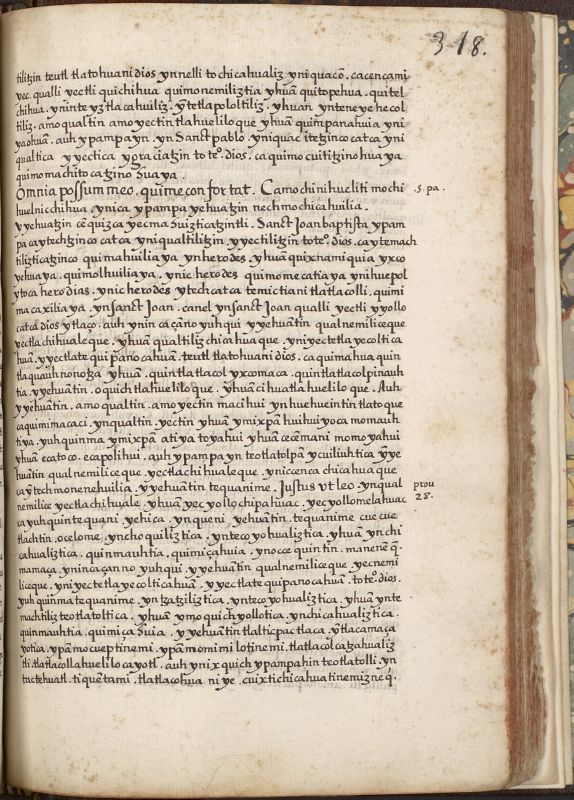 318.
tilitzin teutl tlatohuani dios ynnelli tochicahualiz yniquacō. cacencami
yec. qualli yectli quichihua quimonemiliztia yhuā quitopehua. quitel
chihua. ynin teyztlacahuiliz. ỹtetlapololtiliz. yhuan ynteneyehecol
tiliz. amo qualtin amo yectin tlahuelilo que yhuā quimpanahuia yni
yaohuā. auh ypampa yn. yn Sanct pablo. yniquac itetzinco catca yni
qualtica yyectica ygraciatzin to te.º dios. ca quimo cuitiitzinohuaya
quimomachitocatzino huaya.
Omnia possum in eo. qui me confortat. Camochi nihueliti mochi
huelnicchihua. ynica ypampa yehuatzin nechmochicahuilia.
s. pa.
yyehuatzin cēquizca yecmahuizticatzintli. Sanct Joan baptista ypam
pa caytechtzinco catca yniqualtilitzin yyectilitzin tote.º dios. caytemach
tiliztica tzinco quimahuiliaya ynherodes. yhuā quixnamiquia yxco
yehuaya. quimolhuiliaya. ynic herodes quimomecatiaya ynihuepol
ytoca herodias. ynic herodes ytech catca temictiani tlatlacolli. quimi
macaxiliaya. ynsanct Joan. canel ynsanct Joan qualli yectli yyollo
catca dios ytlaço. auh ynin caçanno yuhqui yyehuātin qualnemiliceque
yectlachihualeque. yhuā qualtilizchicahuaque. yniyectetlayecoltica
huā. yyectlatequipanocahuā. teutl tlatohuani dios. caquimahuaquin
tlaquauhnonotza yhuā. quintlatlacolyxcomaca. quintlatlacolpinauh
tia. yyehuātin. oquichtlahueliloque. yhuā cihuatlahueliloque. Auh
yyehuātin. amo qualtin. amo yectin macihui ynhuehueintin tlatoque
caquimimacaci. ynqualtin. yectin yhuā ymixpā huihuiyoca momauh
tiya. yuhquinma ymixpā atiya toyahui yhuā cecēmani momoyahui
yhuā ecatoco. ecapolihui. auh ypampa yn teotlatolpā ycuiliuhtica ỹye
huātin qualnemiliceque. yectlachihualeque. yniccenca chicahuaque
caỹtech monenehuilia. ỹyehuātin tequanime. Justus vt leo. ynqual
prou
28.
nemilice yectlachihuale. yhuā yecyollochipahuac. yecyollomelahuac
cayuhquin tequani yehica. ynqueni yehuātin. tequanime cuecue
tlachtin. ocelome. yncho quiliztica. yntecoyohualiztica. yhuā ynchi
cahualiztica. quinmauhtia. quimiçahuia. ynocce quintin. manenē q̄.
mamaça. ynin caçanno yuhqui. yyehuātin qualnemiliceque. yecnemi
liceque. yniyectetlayecolticahuā. yyectlatequipanocahuā. tote.º dios.
yuhquinma tequanime. yntzatziliztica. yntecoyohualiztica. yhuā ynte
machtiliz teotlatoltica. yhuā ymoquichyollotica. ynchicahualiztica.
quinmauhtia. quimiçahuia. yyehuātin tlalticpactlaca. ỹtlacamaça
yotica. ypāmocueptinemi. ypānmomimilotinemi. tlatlacolcatzahualiz
tli. tlatlacollahuelilocayotl. auh ynixquich ypampahin teotlatolli. yn
tactehuatl. tiquentami. tlatlacohuani ye. cuix tichicahuatinemizneq̄.